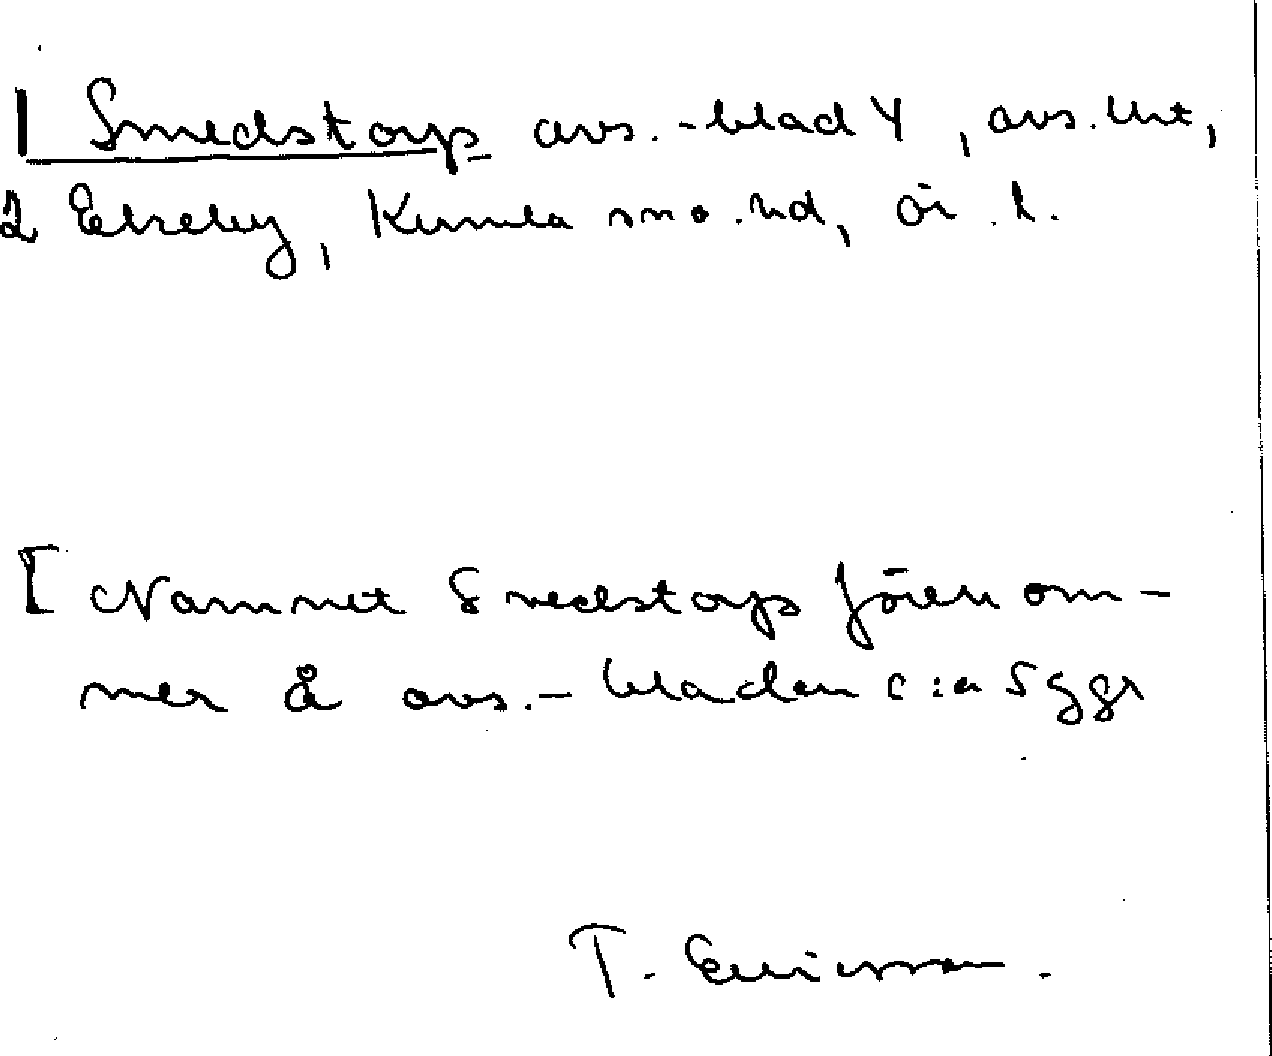 1 Smedstorp avs.-blad 4, avs. Urt,
2 Ekeby, Kumla sno.hd, ör.l.
[ Namnet Smedstorp förekom-
mer å avs.-bladen c:a 5 ggr
T. Ericsson.